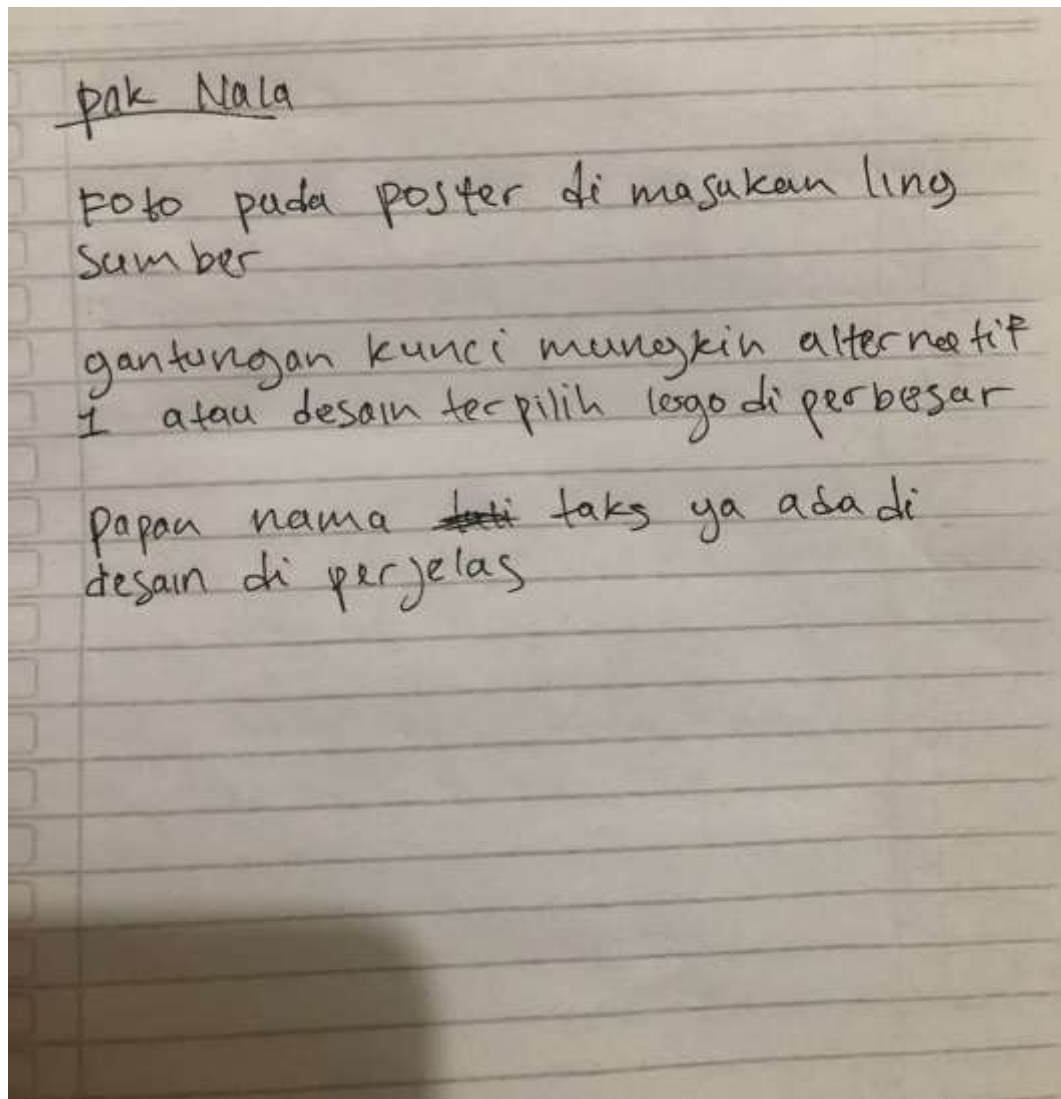 pak Nala
Foto pada poster di masukan ling
sumber
gantungan kunci mungkin alternatif
1 atau desain terpilih logo di perbesar
papan nama taks ya ada di
desain di perjelas